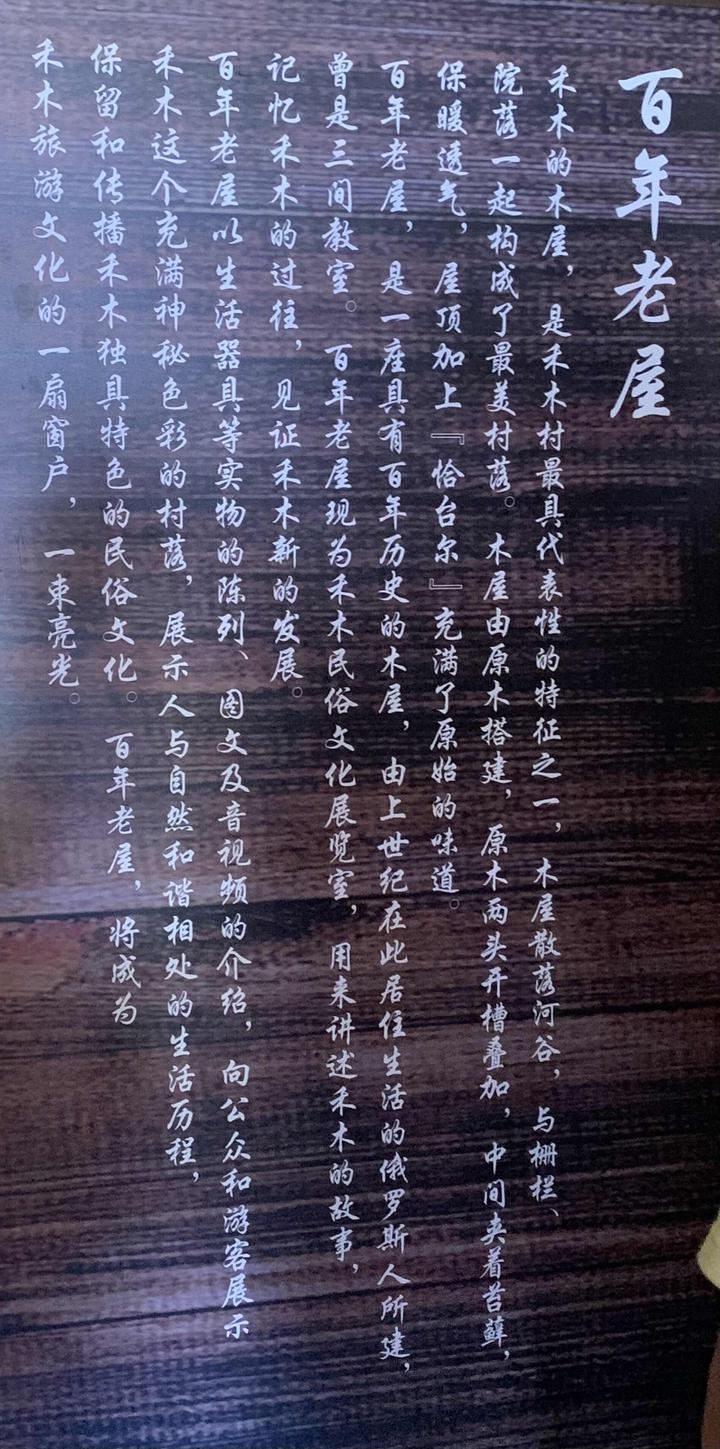 百年老屋
禾木的木屋，是禾木村最具代表性的特征之一，木屋散落河谷，与栅栏、
院落一起构成了最美村落。木屋由原木搭建，原木两头开槽叠加，中间夹着苔藓，
保暖透气，屋顶加上『恰台尔』充满了原始的味道。
百年老屋，是一座具有百年历史的木屋，由上世纪在此居住生活的俄罗斯人所建，
曾是三间教室。百年老屋现为禾木民俗文化展览室，用来讲述禾木的故事，
记忆禾木的过往，见证禾木新的发展。
百年老屋以生活器具等实物的陈列、图文及音视频的介绍，向公众和游客展示
禾木这个充满神秘色彩的村落，展示人与自然和谐相处的生活历程，
保留和传播禾木独具特色的民俗文化。百年老屋，将成为
禾木旅游文化的一扇窗户，一束亮光。